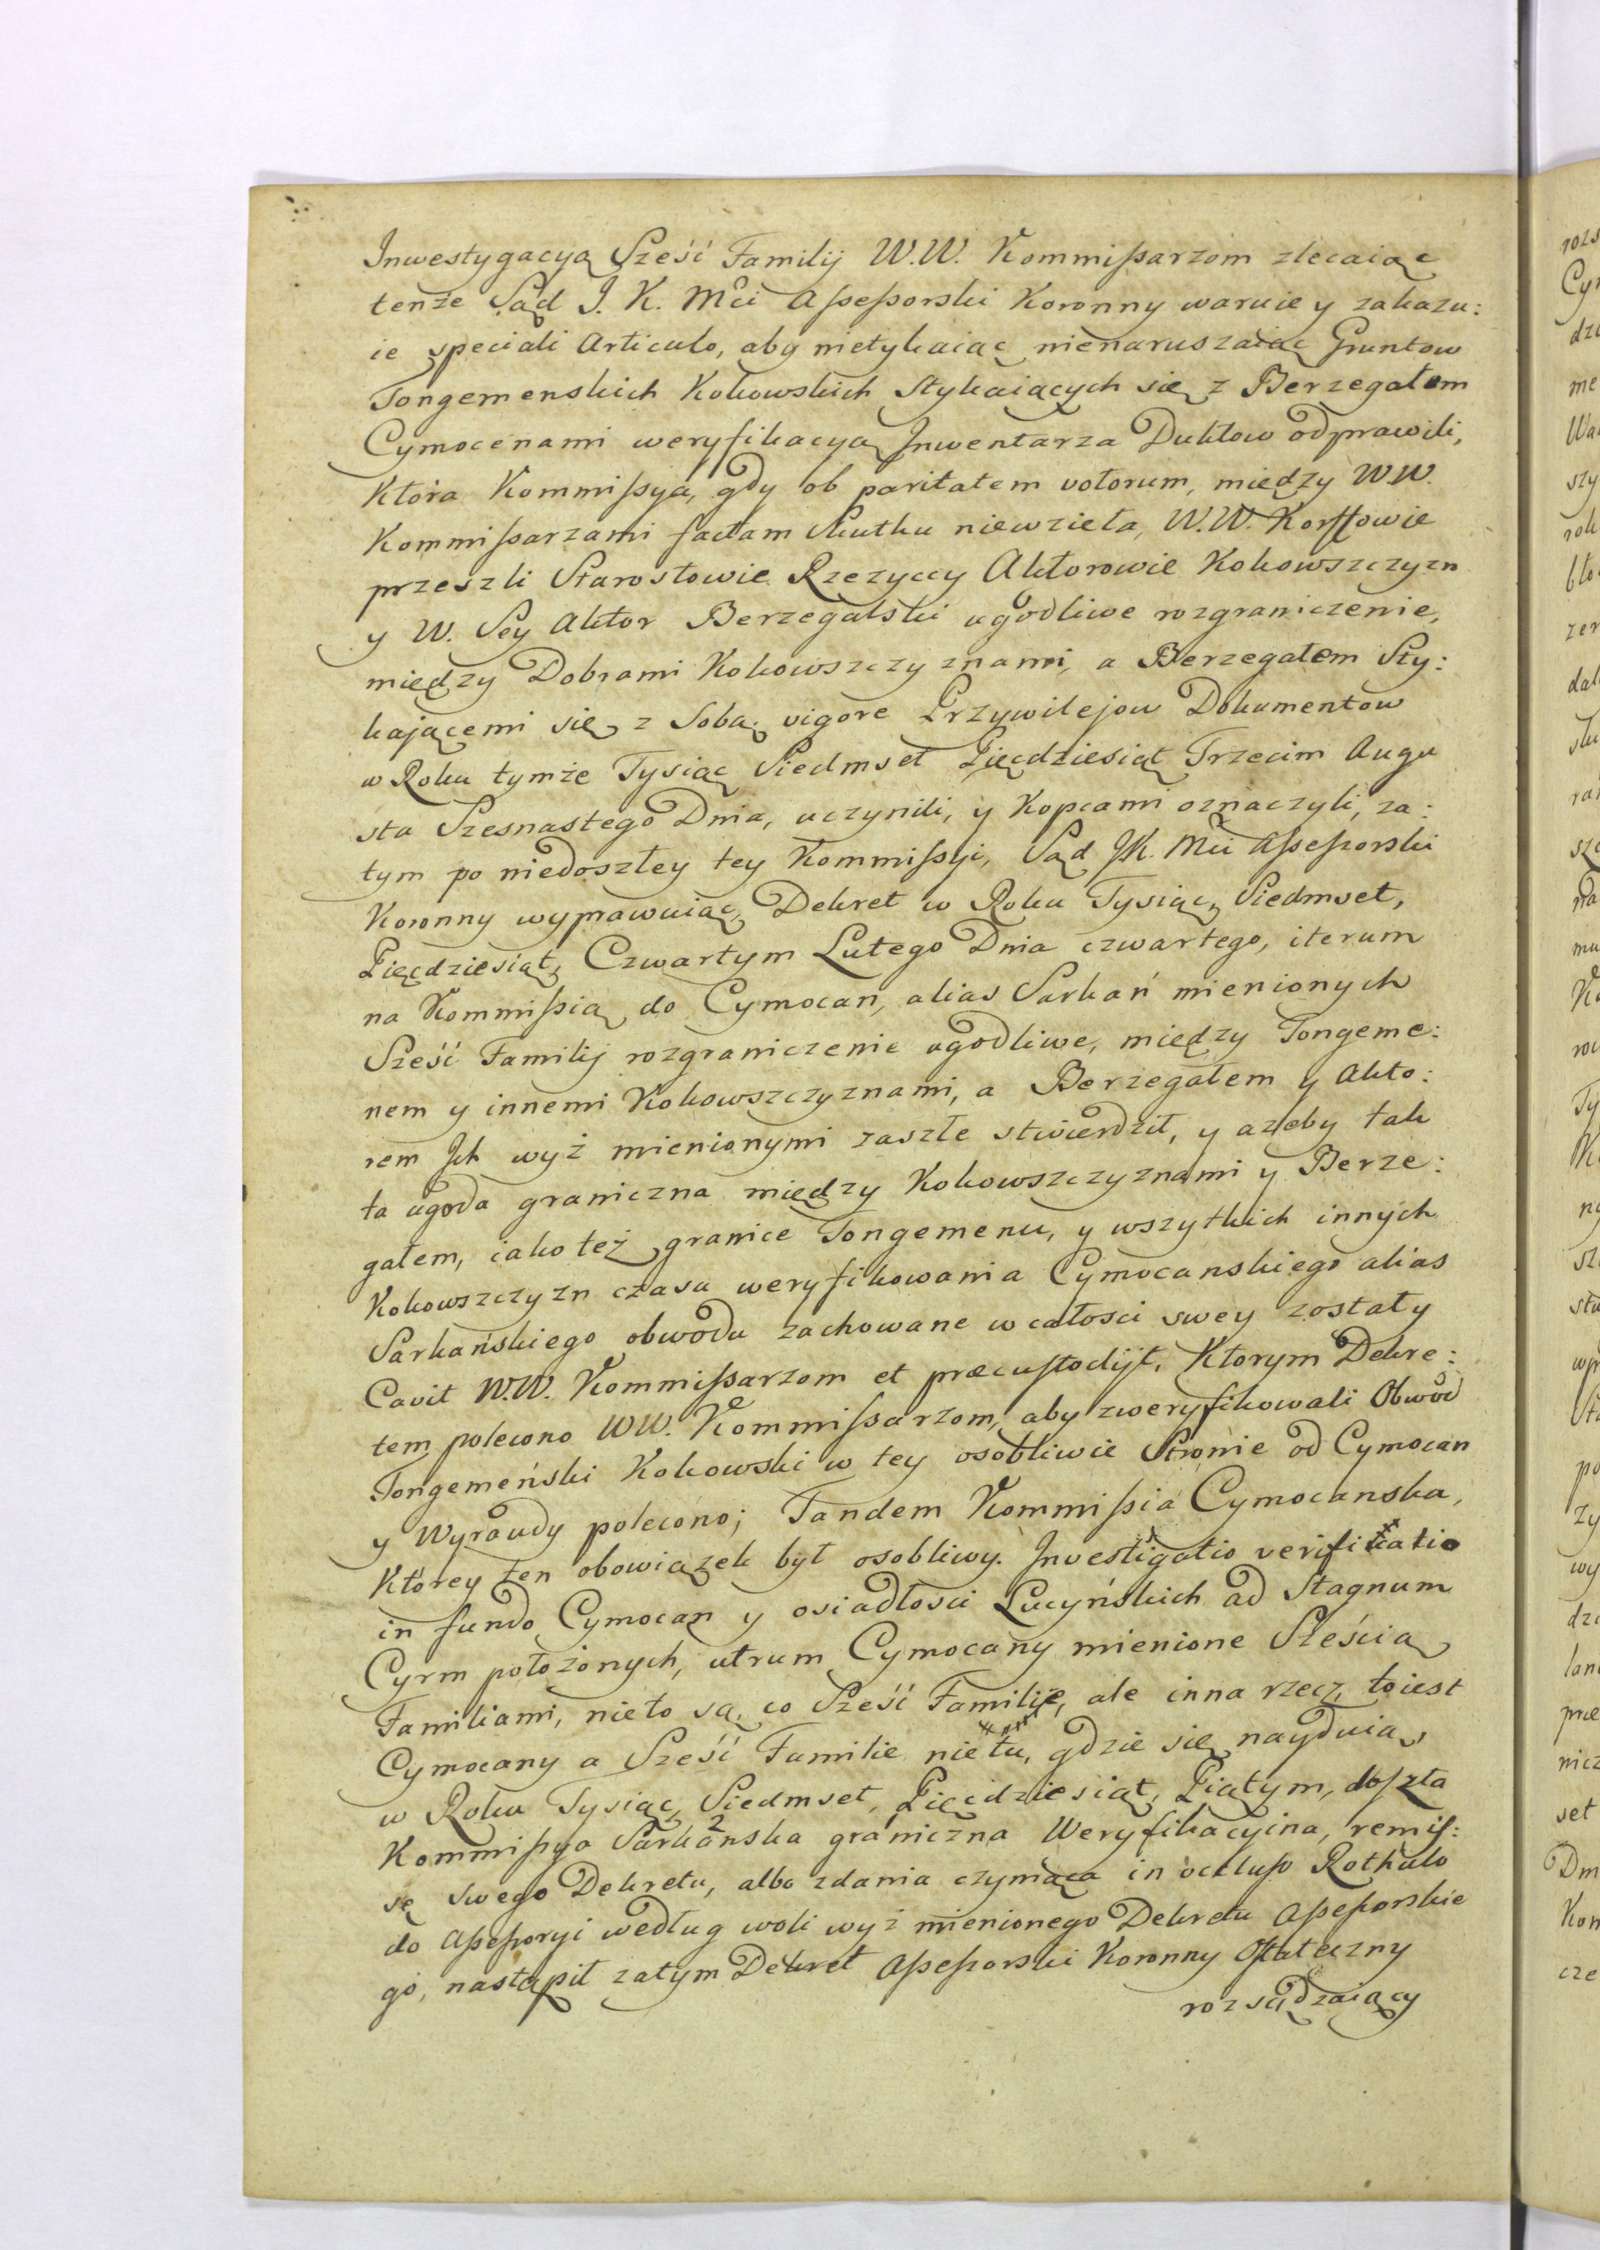 Inwestygacyą Sześć Familij W.W. Kommissarzom zlecaiąc
tenże Sąd J. K. Mci Assessorski Koronny waruie y zakazu:
ie speciali Articulo, aby nietykaiąc nienaruszaiąc Gruntow
Tongemenskich Kokowskich Stykaiących się z Berzegałem
Cymocenami weryfikacyą Inwentarza Duktow odprawili,
Ktora Kommissya, gdy ob paritatem votorum, między W.W.
Kommissarzami factam Skutku niewzieła, W.W. Korffowie
przeszli Starostowie Rzezyccy Aktorowie Kokowszczyzn
y W. Sey Aktor Berzegalski ugodliwe rozgraniczenie,
między Dobrami Kokowszczyznami, a Berzegałem Sty:
kającemi się z Sobą vigore Przywilejow Dokumentow
w Roku tymże Tysiąc Siedmset Pięcdziesiąt Trzecim Augu
sta Szesnastego Dnia, uczynili, y Kopcami oznaczyli, za:
tym po niedoszłey tey Kommissyi, Sąd JK. Mci Assessorski
Koronny wyprawuiąc Dekret w Roku Tysiąc Siedmset,
Pięcdziesiąt Czwartym Lutego Dnia czwartego, iterum
na Kommissią do Cymocan, alias Sarkań mienionych
Sześć Familij rozgraniczenie ugodliwe, między Tongeme:
nem y innemi Kokowszczyznami, a Berzegałem y Akto:
rem Jch wyż mienionymi zaszłe stwierdził, y ażeby tak
ta ugoda graniczna między Kokowszczyznami y Berze:
gałem, iako też granice Tongemenu, y wszytkich innych
Kokowszczyzn czasu weryfikowania Cymocanskiego alias
Sarkańskiego obwodu zachowane wcałosci swey zostały
Cavit W.W. Kommissarzom et præcustodijt, Ktorym Dekre:
tem polecono WW. Kommissarzom, aby zweryfikowali Obwod
Tongemeński Kokowski w tey osobliwie Stronie od Cymocan
y Wyraudy polecono; Tandem Kommissia Cymocanska,
Ktorey ten obowiązek był osobliwy. Investigatio verificatio
in fundo Cymocan y osiadłosci Lucyńskich ad Stagnum
Cyrm położonych, utrum Cymocany mienione Sześcią
Familiami, nieto są, co Sześć Familie, ale inna rzecz toiest
Cymocany a Sześć Familie nie tu, gdzie się nayduią,
w Roku Tysiąc Siedmset, Pięcdziesiąt Piątym, doszła
Kommissya Sarkanska graniczna Weryfikacyina, remis:
sę swego Dekretu, albo zdania czyniąca in occluso Rothulo
do Assessoryi według woli wyż mienionego Dekretu Assessorskie
go, nastąpił zatym Dekret Assessorski Koronny Ostateczny
rozsądzaiący